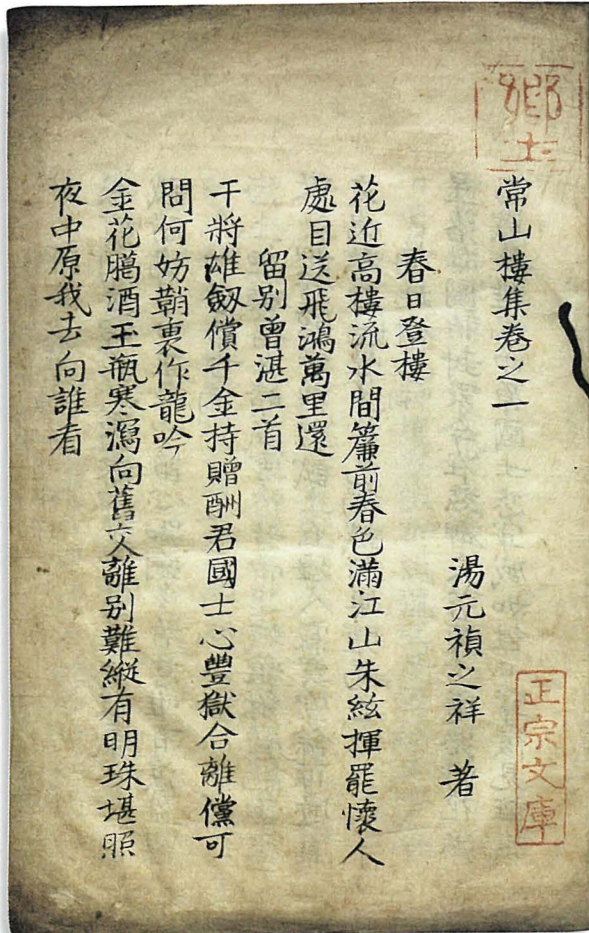 郷土
常山樓集卷之一
湯元禎之祥 著
正宗文庫
春日登樓
花近高樓流水間簾前春色滿江山朱絃揮罷懷人
處目送飛鴻萬里還
留別曾湛二首
干將雄劔償千金持贈酬君國士心豐獄合離儻可
問何妨鞘裏作龍吟
金花臈酒玉瓶寒瀉向舊交離別難縱有明珠堪照
夜中原我去向誰看